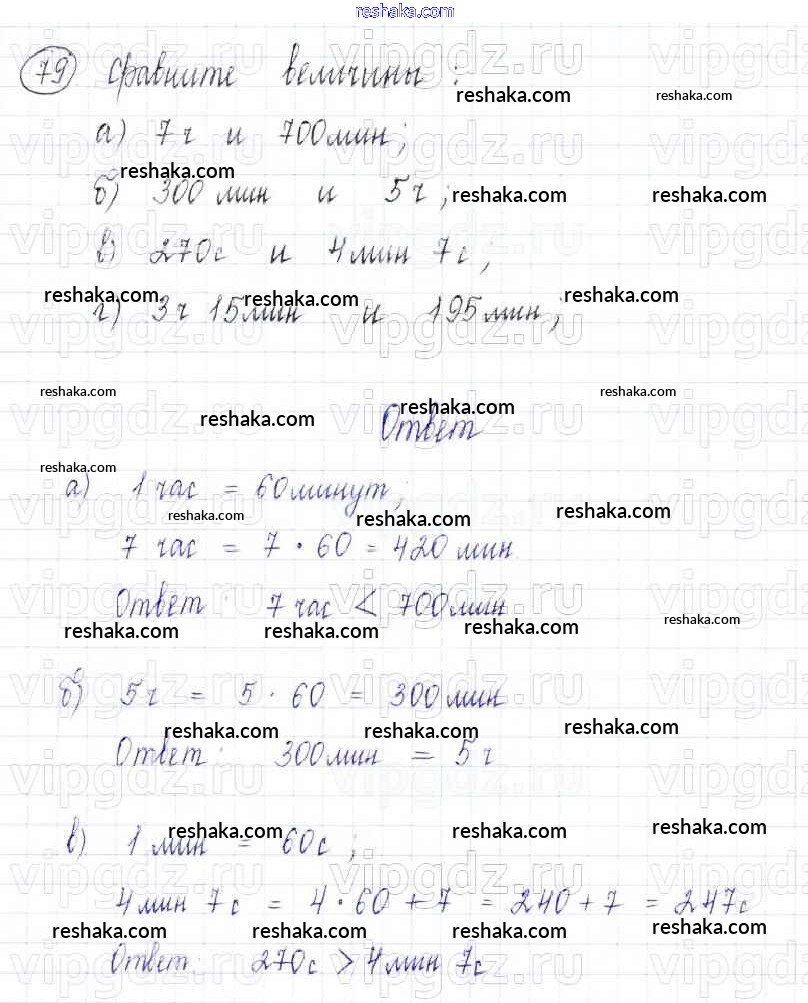 reshaka.com
79 Сравните величины:
reshaka.com reshaka.com
а) 7 ч и 700 мин;
reshaka.com
б) 300 мин и 5 ч;
reshaka.com reshaka.com
в) 270 с и 4 мин 7 с;
reshaka.com reshaka.com reshaka.com
г) 3 ч 15 мин и 195 мин;
reshaka.com reshaka.com
reshaka.com reshaka.com
Ответ
reshaka.com
а) 1 час = 60 минут;
reshaka.com reshaka.com reshaka.com
7 час = 7 · 60 = 420 мин
Ответ: 7 час < 700 мин
reshaka.com reshaka.com reshaka.com reshaka.com
б) 5 ч = 5 · 60 = 300 мин
reshaka.com reshaka.com reshaka.com
Ответ: 300 мин = 5 ч
reshaka.com reshaka.com reshaka.com
в) 1 мин = 60 с;
4 мин 7 с = 4 · 60 + 7 = 240 + 7 = 247 с
reshaka.com reshaka.com reshaka.com reshaka.com
Ответ: 270 с > 4 мин 7 с
vipgdz.ru